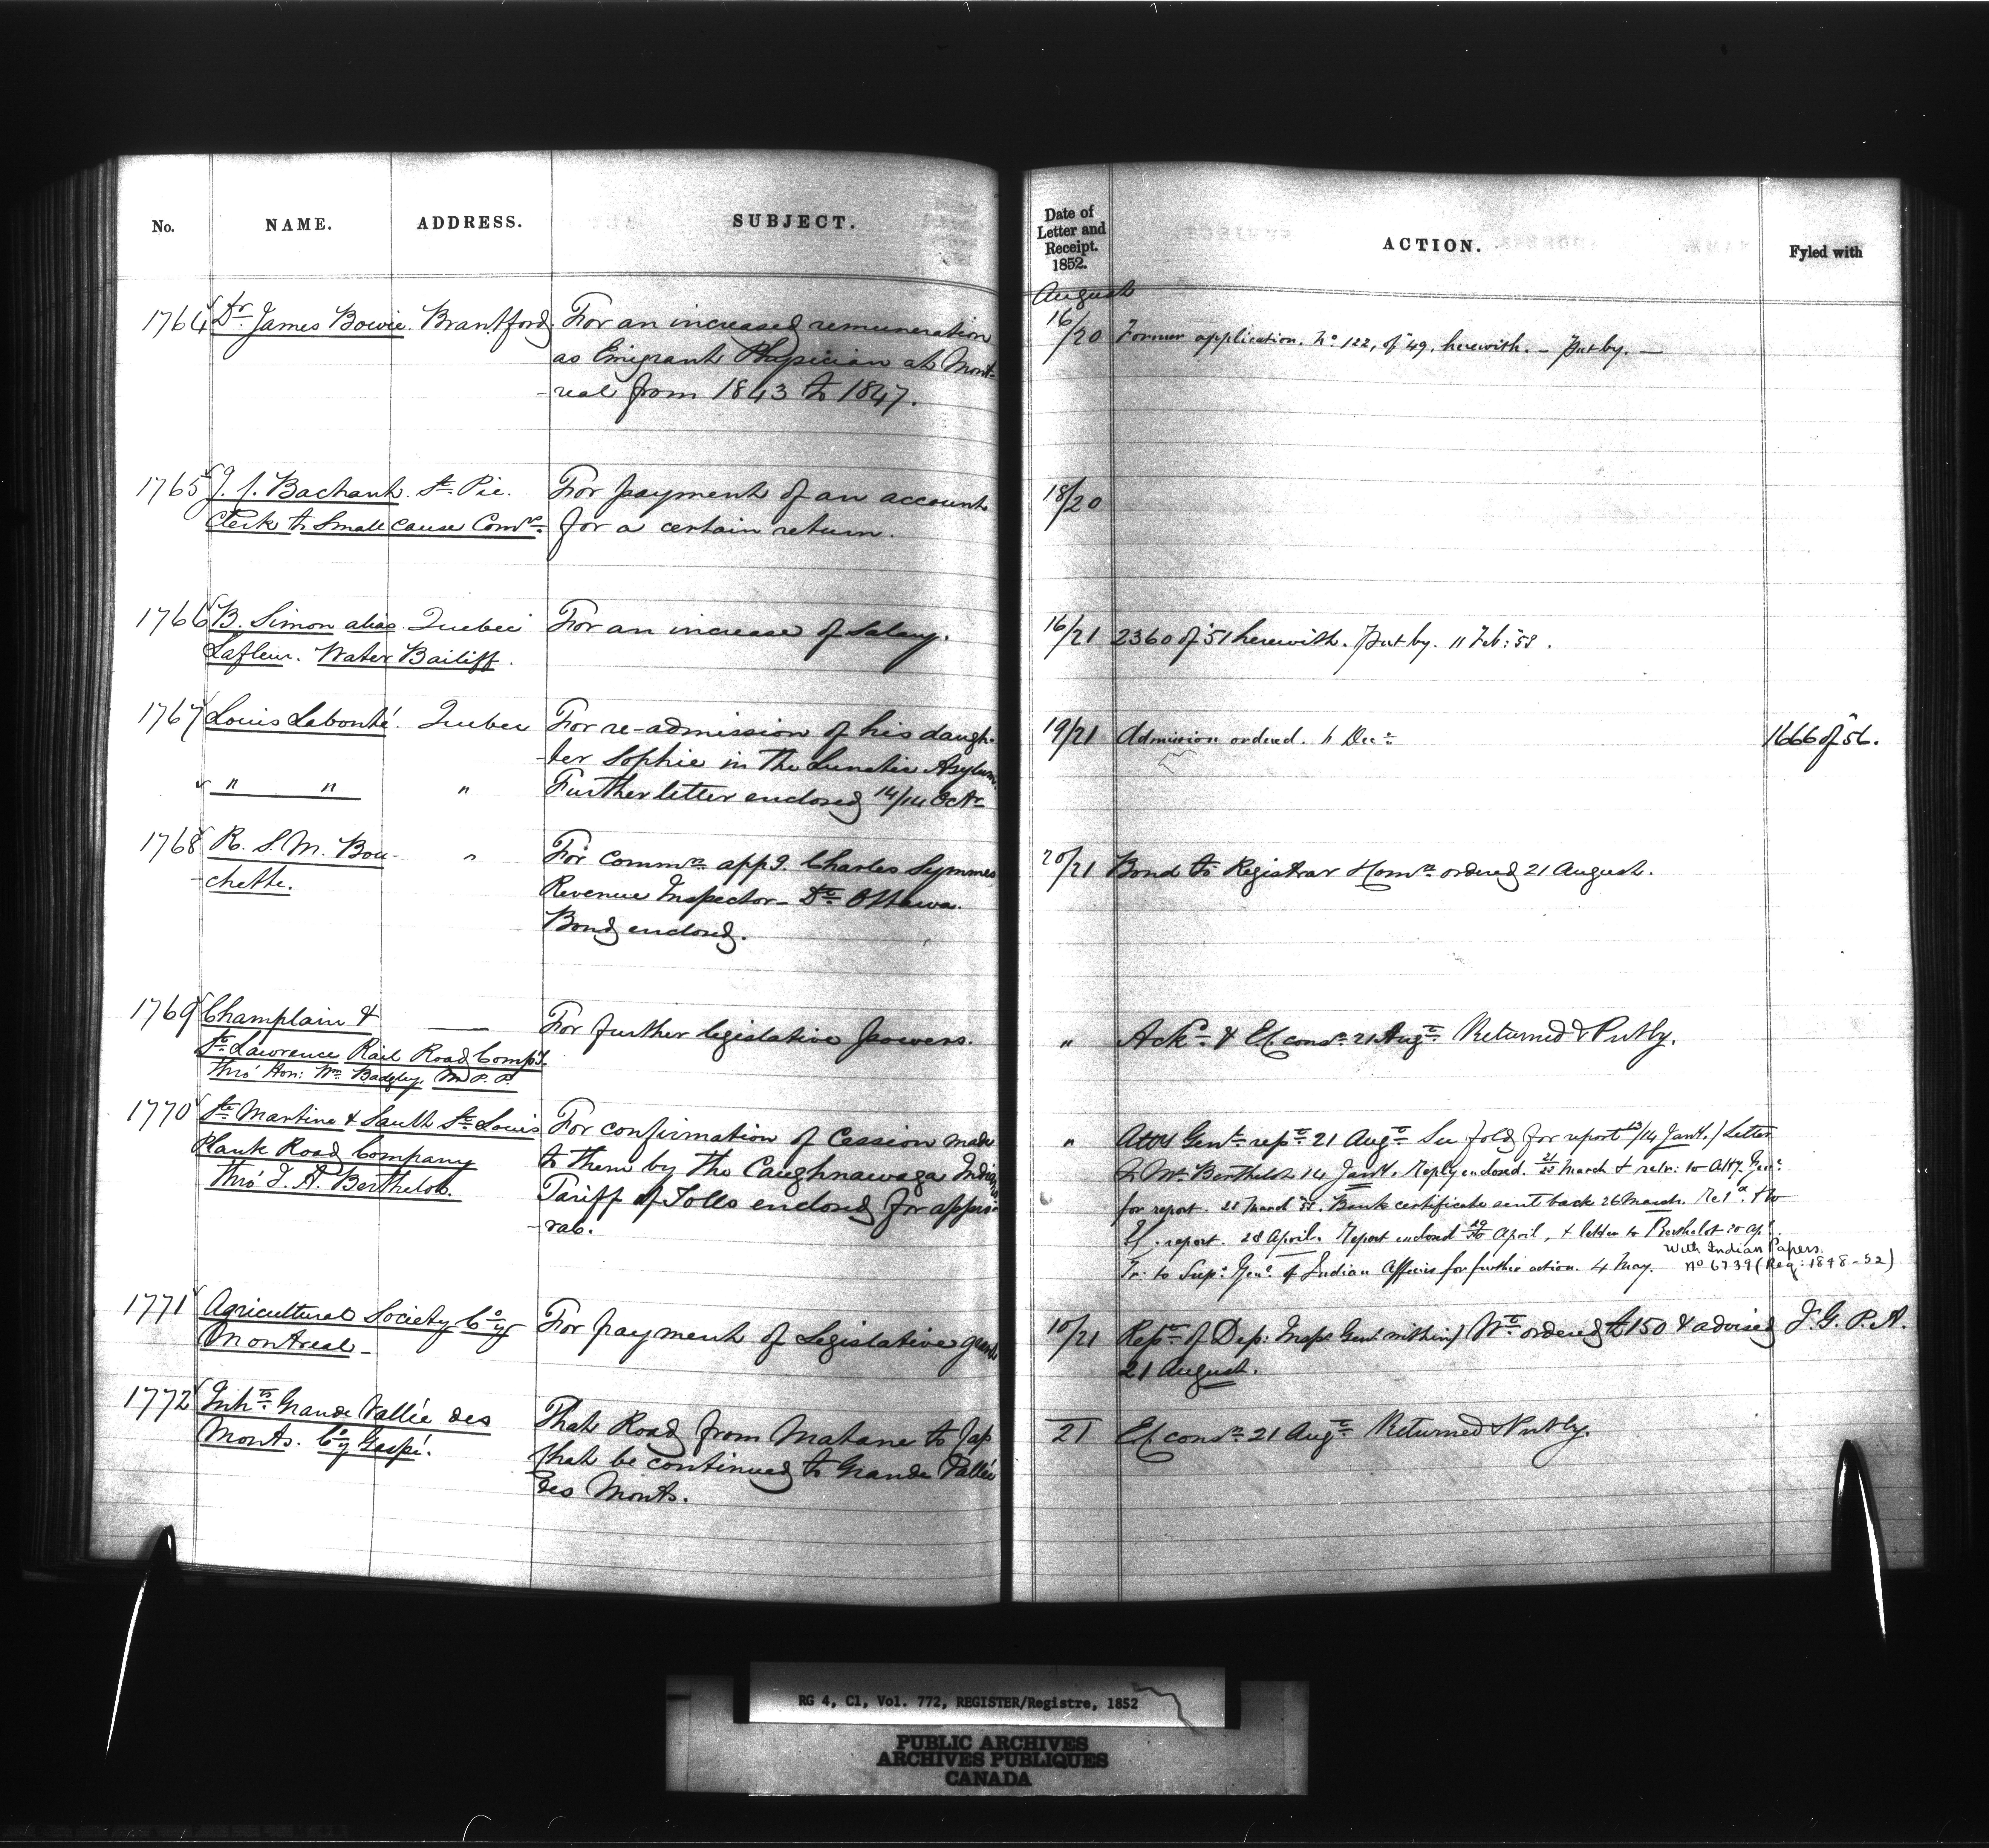 No. NAME. ADDRESS. SUBJECT.
1764 Dr. James Bowie. Brantford. For an increased remuneration
as Emigrant Physician at Mont-
-real from 1843 to 1847.
1765 J. J. Bachant. St. Pie. For payment of an account
Clerk to Small Cause Comrs. for a certain return.
1766 B. Simon alias Quebec For an increase of Salary.
Lafleur. Water Bailiff.
1767 Louis Lebonté. Quebec For re-admission of his daugh-
-ter Sophie in the Lunatic Asylum.
" " " Further letter enclosed 14/14 Octr
1768 R. S. M. Bou- " For Commn. appg. Charles Symmes
-chette. Revenue Inspector - Dt. Ottawa.
Bond enclosed.
1769 Champlain & — For further legislative powers.
St. Lawrence Rail Road Compy.
Thro' Hon: Wm. Badgley, M.P.P.
1770 Ste. Martine & Sault St. Louis For confirmation of Cession made
Plank Road Company to them by the Caughnawaga Indians.
Thro' J. A. Berthelot. Tariff of Tolls enclosed for appro-
-val.
1771 Agricultural Society Coy. For payment of Legislative grant
Montreal -
1772 Inhts. Grande Vallée des That Road from Matane to Cap
Monts. Coy Gaspé. that be continued to Grande Vallée
des Monts.
Date of
Letter and
Receipt.
1852. ACTION. Fyled with
August
16/20 Former application. No. 122, of 49, herewith. - Put by. -
18/20
16/21 2360 of '51 herewith. Put by. 11 Feb: '58.
19/21 Admission ordered. 11 Decr. 1666 of 56.
20/21 Bond to Registrar & Comn. ordered 21 August.
" Ackn. & Ex. conn. 21 Augt. Returned & Put by.
" Atty Genl. rept. 21 Augt. See fold for report /14 Jany. / Letter
to Mr. Berthelot 14 Jany. Reply enclosed. March & retr: to Atty. Genl.
for report. 28 March. Bank certificate sent back 26 March.
Ex. report. 28 April. Report enclosed April, & letter to Berthelot 20 Apl.
With Indian Papers.
Tr: to Supt. Genl. of Indian Affairs for further action. 4 May. No 6739 (Reg: 1848-52)
10/21 Rept. of Dep: Insp. Genl. within / Wt. ordered £150 & advised J. G. P. A.
21 August.
21 Ex. conn. 21 Augt. Returned & Put by.
RG 4, C1, Vol. 772, REGISTER/Registre, 1852
PUBLIC ARCHIVES
ARCHIVES PUBLIQUES
CANADA